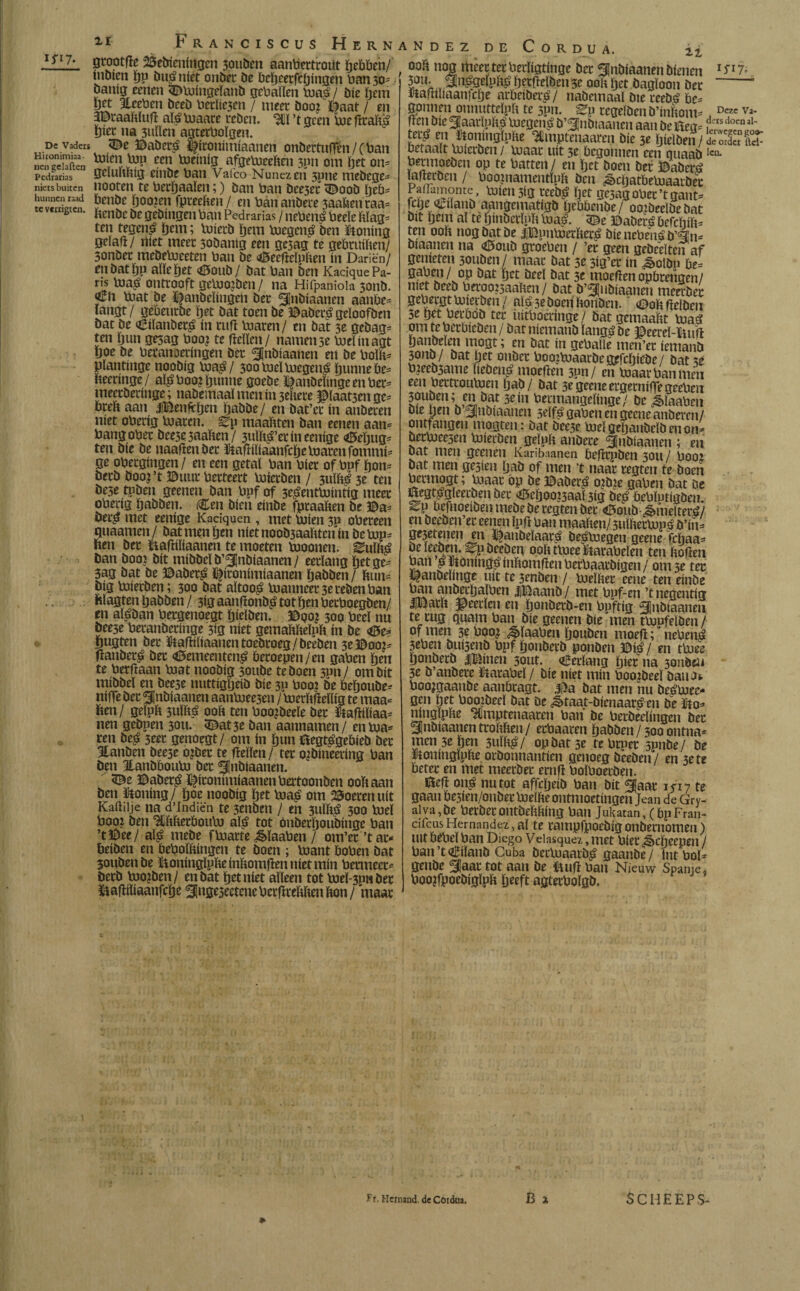 21 FRANCISCUS HERNANDEZ DE CORDUA. 22
1517.
grootste Bedieningen zouden aanvertrout hebben/
indien hy dus niet onder de beheerschingen van zo-
danig eenen Dwingeland gevallen was/ die hem
het Leeven deed verliezen / meer door Haat / en
Wraaklust als waare reden. Al 't geen we straks
hier na zullen agtervolgen.
De Vaders
Hironimiaa-
nen gelasten
Pedrarias
niets buiten
hunnen raad
te verrigten.
De Vaders Hironimiaanen ondertussen/ (van
wien wy een weinig afgeweeken zyn om het on-
gelukkig einde van Vasco Nunez en zyne medege-
nooten te verhaalen;) dan van deezer Dood heb-
bende hooren spreeken / en van andere zaaken raa-
kende de gedingen van Pedrarias / nevens veele klag-
ten tegens hem; wierd hem wegens den Koning
gelast/ niet meer zodanig een gezag te gebruiken/
zonder medeweeten van de Geestelyken in Dariën/
en dat hy alle het Goud / dat van den Kacique Pa-
ris was ontrooft geworden/ na Hispaniola zond.
En wat de Handelingen der Indiaanen aanbe-
langt / gebeurde het dat toen de Vaders geloofden
dat de Eilanders in rust waren/ en dat ze gedag-
ten hun gezag voor te stellen/ namen ze wel in agt
hoe de veranoeringen der Indiaanen en de Volk-
plantinge noodig was / zoo wel wegens hunne be-
keeringe / als voor hunne goede Handelinge en ver-
meerderinge; nademaal men in zekere Plaatzen ge-
brek aan Menschen hadde/ en dat'er in anderen
niet overig waren. Zy maakten dan eenen aan-
vang over deeze zaaken/ zulks 'er in eenige Gehug-
ten die de naasten der Kastiliaansche waren sommi-
ge overgingen / en een getal van vier of vyf hon-
derd door 't Vuur verteert wierden / zulks ze ten
deze tyden geenen dan vyf of zesentwintig meer
overig hadden. Een dien einde spraaken de Va-
ders met eenige Kaciquen , met wien zy overeen
quaamen/ dat men hen niet noodzaakten in de wyn-
ken der Kastiliaanen te moeten woonen. Zulks
dan door dit middel d'Indiaanen / eerlang het ge-
zag dat de Vaders Hironimiaanen hadden/ kun-
dig wierden; zoo dat altoos wanneer ze reden van
klagten hadden / zig aanstonds tot hen vervoegden/
en alsdan vergenoegt hielden. Voor zoo veel nu
deeze veranderinge zig niet gemakkelyk in de Ge-
hugten der Kastiliaanen toebroeg/ deeden ze Voor-
standers der Gemeentens beroepen/ en gaven hen
te verstaan wat noodig zoude te doen zyn/ om dit
middel en deeze nuttigheid die zy voor de behoude-
nisse der Indiaanen aanweezen / werkstellig te maa-
ken / gelyk zulks ook ten voordeele der Kastiliaa-
nen gedyen zou. Dat ze dan aannamen / en wa-
ren des zeer genoegt/ om in hun Regtsgebied der
Landen deeze order te stellen / ter ordineering van
den Landbouw der Indiaanen.
De Vaders Hironimiaanen vertoonden ook aan
den Koning / hoe noodig het was om Boeren uit
Kastilje na d'Indiën te zenden / en zulks zoo wel
voor den Akkerbouw als tot onderhoudinge van
't Vee/ als mede swarte Slaaven / om'er 't ar-
beiden en bevolkingen te doen ; want boven dat
zouden de Koninglyke inkomsten niet min vermeer-
derd worden / en dat het niet alleen tot wel-zyn der
Kastiliaansche Ingezectene verstrekken kon / maar
ook nog meer ter verligtinge der Indiaanen dienen
zou. Insgelyks herstelden ze ook het dagloon der
Kastiliaansche arbeiders / nademaal die reeds be-
gonnen onnuttelyk te zyn. Zy regelden d'inkom-
sten die Jaarlyks wegens d'Indiaanen aan de Reg-
ters en Koninglyke Amptenaaren die ze hielden /
betaalt wierden / waar uit ze begonnen een quaad
vermoeden op te vatten / en het doen der Vaders
lasterden / voornamentlyk den Schatbewaarder
Passamonte, wien zig reeds het gezag over 't gant-
sche Eiland aangematigd hebbende/ oordeelde dat
dit hem al te hinderlyk was. De Vaders beschik-
ten ook nog dat de Mynwerkers die nevens d'In-
diaanen na Goud groeven / 'er geen gedeelten af
genieten zouden / maar dat ze zig'er in Soldy be-
gaven / op dat het deel dat ze moesten opbrengen/
niet deed veroorzaaken / dat d'Indiaanen meerder
gevergt wierden / als ze doen konden. Ook stelden
ze het verbod ter uitvoeringe / dat gemaakt was
om te verbieden / dat niemand langs de Peerel-Kust
handelen mogt ; en dat in gevalle men'er iemand
zond / dat het onder voorwaarde geschiede / dat ze
vreedzame lieden moesten zyn / en waar van men
een vertrouwen had / dat ze geene ergernisse geeven
zouden ; en dat ze in vermangelinge / de Slaaven
die hen d'Indiaanen zelfs gaven en geene anderen/
ontfangen mogten: dat deeze wel gehandeld en on-
derweezen wierden gelyk andere Indiaanen ; en
dat men geenen Karibaanen bestryden zou / voor
dat men gezien had of men 't naar regten te doen
vermogt ; waar op de Vaders order gaven dat de
Regtsgleerden der Gehoorzaal zig des bevlytigden.
Zy besnoeiden mede de regten der Goud-Smelters/
en deeden'er eenen lyst van maaken/ zulker wys d'in-
gezetenen en Handelaars deswegen geene schaa-
de leeden. Zy deeden ook twee Karavelen ten kosten
van 's Konings inkomsten vervaardigen / om ze ter
Handelinge uit te zenden / welker eene ten einde
van anderhalven Maand / met vyf-en 't negentig
Mark Peerlen en honderd-en vyftig Indiaanen
te rug quam van die geenen die men twyfelden /
of men ze voor Slaaven houden moest; nevens
zeven duizend vyf honderd ponden Vis / en twee
honderd Mynen zout. Eerlang hier na zonden
ze d'andere Karavel / die niet min voordeel daar
voorgaande aanbragt. Na dat men nu deswee-
gen het voordeel dat de Staat-dienaars en de Ko-
ninglyke Amptenaaren van de verdeelingen der
Indiaanen trokken / ervaaren hadden / zoo ontna-
men ze hen zulks / op dat ze te vryer zynde / de
Koninglyke ordonnantien genoeg deeden / en ze te
beter en met meerder ernst volvoerden.
1517.
Deze Va-
ders doen al-
lerwegen goe-
de order stel-
len.
Rest ons nu tot affcheid van dit Jaar 1517 te
gaan bezien/ onder welke ontmoetingen Jean de Gry-
alva, de verder ontdekking van Jukatan, ( by Fran-
ciscus Hernandez, al te rampspoedig ondernomen )
uit bevel van Diego Velasquez , met vier Scheepen /
van 't Eiland Cuba derwaards gaande / int vol-
gende Jaar tot aan de Kust van Nieuw Spanje,
voorspoediglyk heeft agtervolgd.
Fr. Hernand. de Cordua. B 2 SCHEEPS-